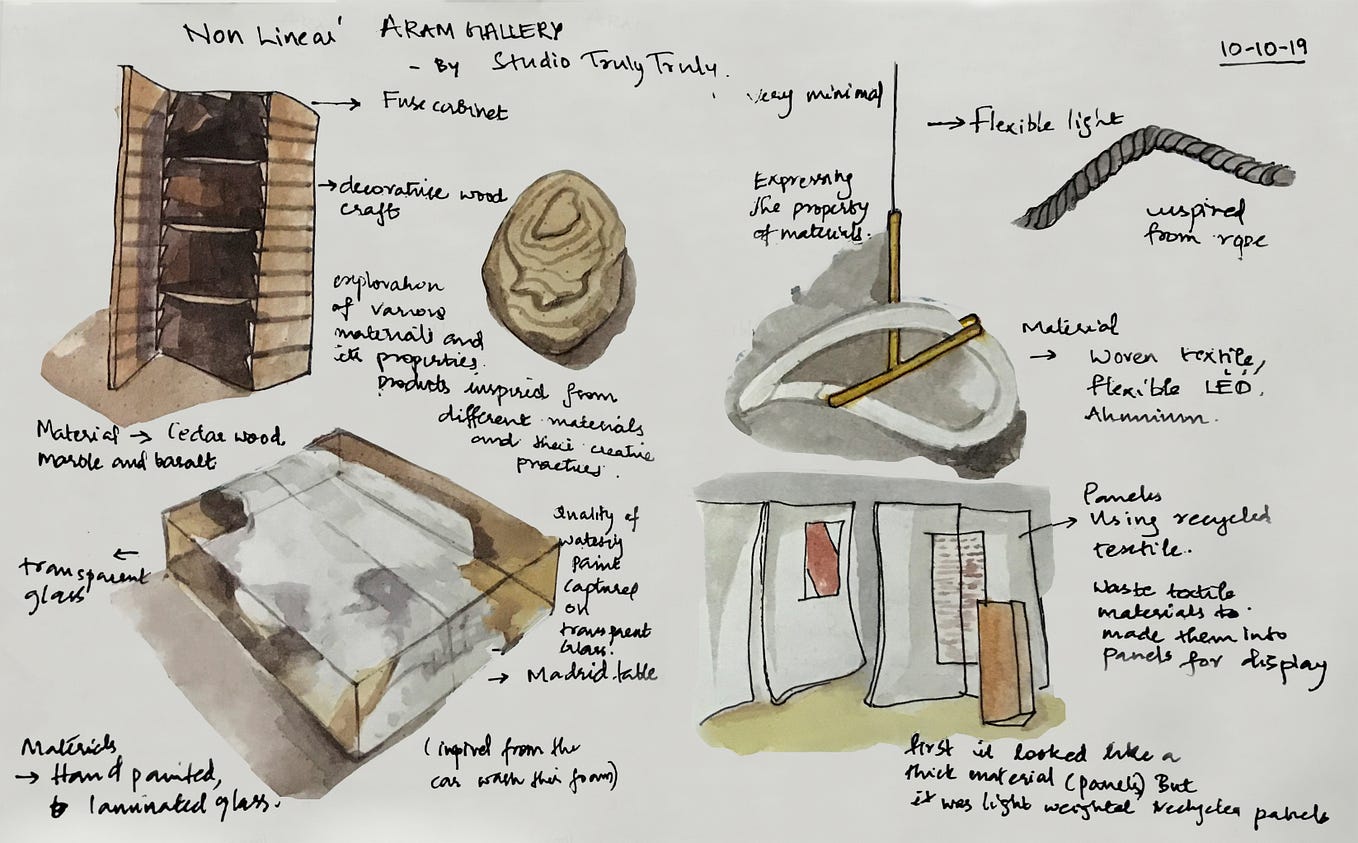 Non Linear' ARAM GALLERY
- By Studio Truly Truly.
10-10-19
→ Fuse cabinet
→ decorative wood
craft
exploration
of various
materials and
its properties.
products inspired from
different materials
and their creative
practices.
Material → Cedar wood,
marble and basalt
← transparent
glass
Quality of
watery
paint
captured
on
transprent
Glass.
→ Madrid table
Materials
→ Hand painted,
laminated glass.
(inpired from the
car wash thin foam)
very minimal
→ Flexible light
Expressing
The property
of materials.
inspired
from rope
Material
→ Woven textile,
flexible LED,
Aluminium.
Panels
→ Using recycled
textile.
Waste textile
materials to
made them into
panels for display
first it looked like a
thick material (panels) But
it was light weighted recycled panels